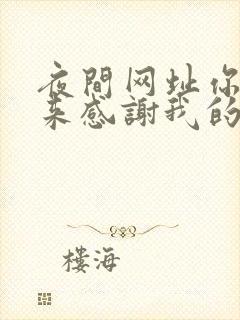 夜間网址你
来感謝我的
樓海